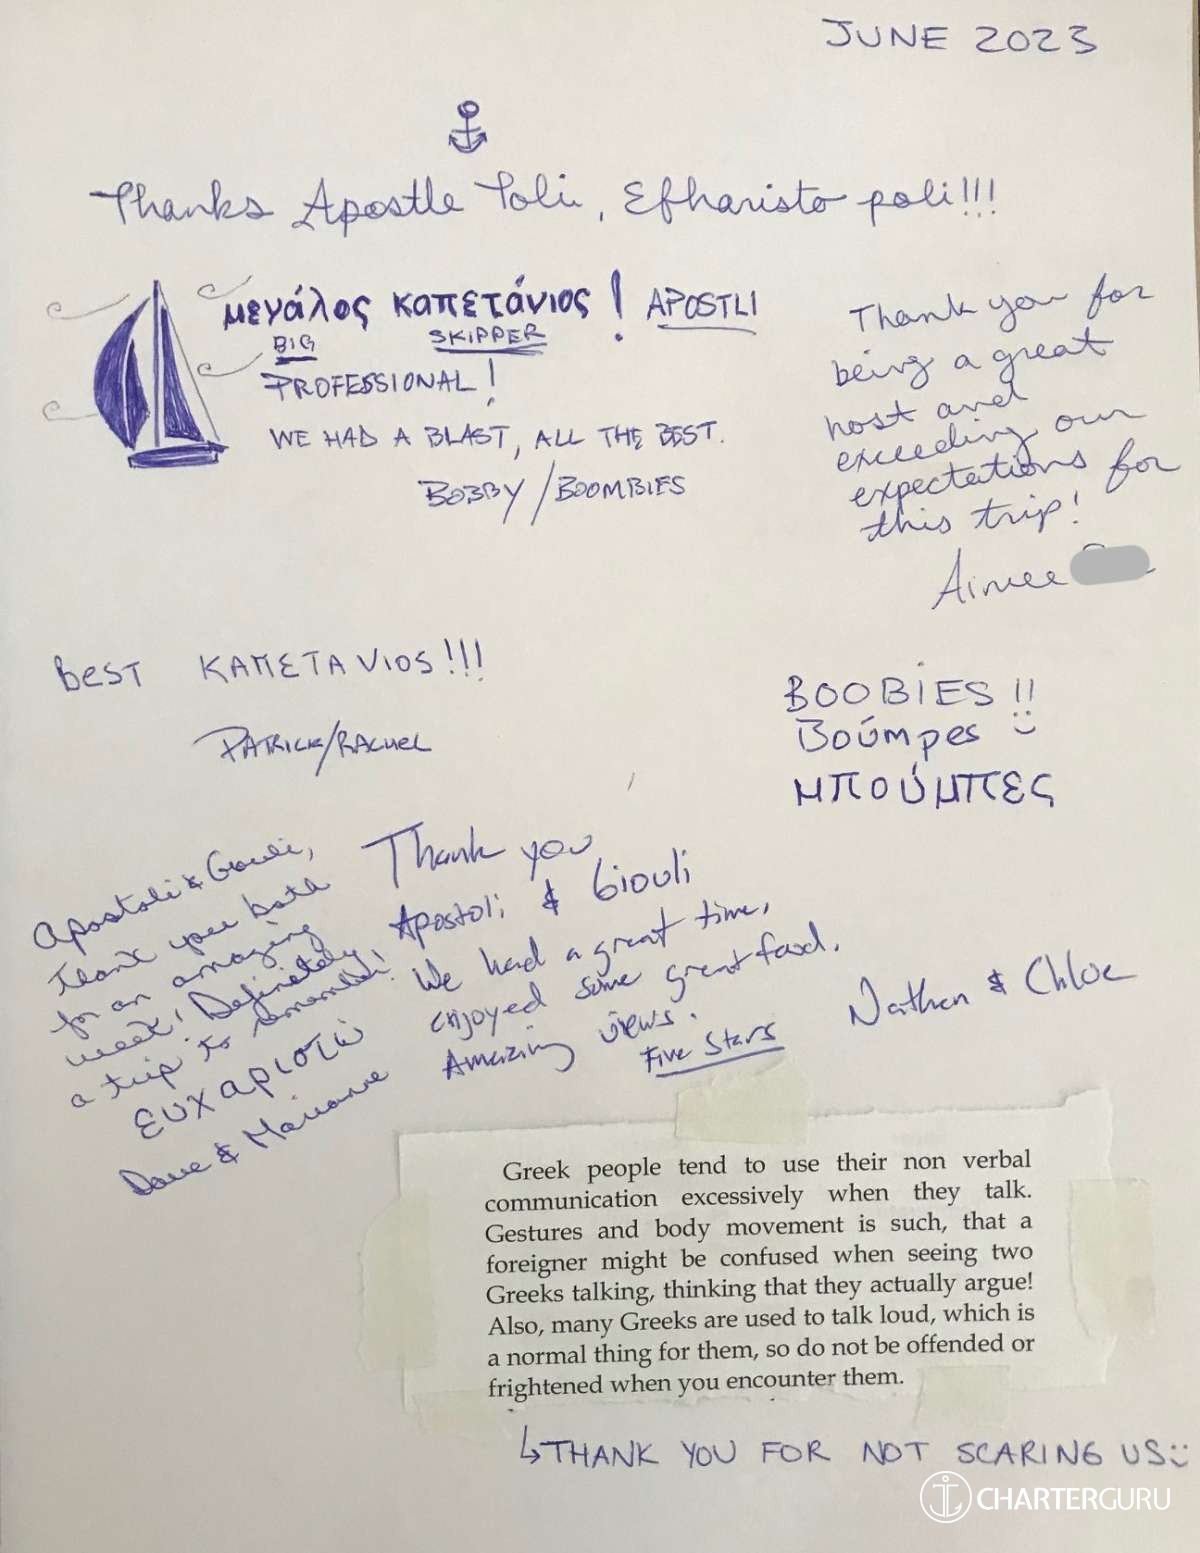 JUNE 2023
Thanks Apostle Toli, Efharisto poli!!!
μεγάλος καπετάνιος! APOSTLI
BIG SKIPPER
PROFESSIONAL!
WE HAD A BLAST, ALL THE BEST.
BOBBY/BOOMBIES
Thank you for
being a great
host and
exceeding our
expectations for
this trip!
Aimee
BEST ΚΑΠΕΤΑΝΙΟS!!!
PATRICK/RACHEL
BOOBIES!!
Βούmpes
μπούμπες
Apostoli & Giouli,
Thank you both
for an amazing
week! Definitely
a trip to remember!
ευχαριστώ
Dave & Marianne
Thank you
Apostoli & Giouli
We had a great time,
enjoyed some great food.
Amazing views.
Five Stars
Nathan & Chloe
Greek people tend to use their non verbal
communication excessively when they talk.
Gestures and body movement is such, that a
foreigner might be confused when seeing two
Greeks talking, thinking that they actually argue!
Also, many Greeks are used to talk loud, which is
a normal thing for them, so do not be offended or
frightened when you encounter them.
↳THANK YOU FOR NOT SCARING US
CHARTERGURU